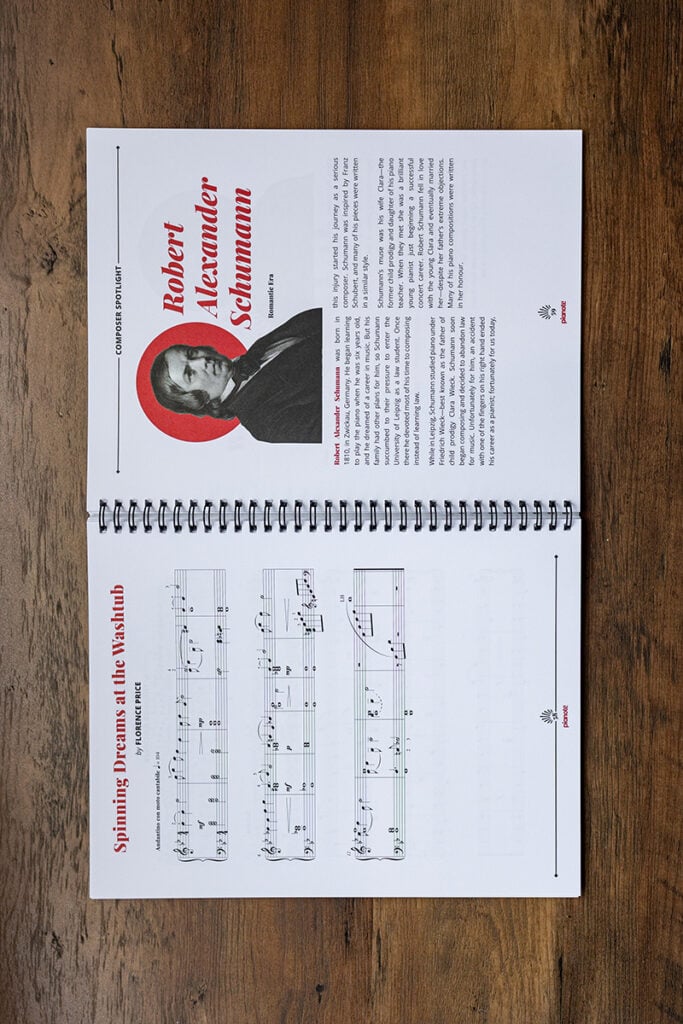 Spinning Dreams at the Washtub
by FLORENCE PRICE
Andantino con moto cantabile ♩ = 104
mf
mp
4
mf
p
mp
LH
58
pianote
COMPOSER SPOTLIGHT
Robert
Alexander
Schumann
Romantic Era
Robert Alexander Schumann was born in
1810, in Zwickau, Germany. He began learning
to play the piano when he was six years old,
and he dreamed of a career in music. But his
family had other plans for him, so Schumann
succumbed to their pressure to enter the
University of Leipzig as a law student. Once
there he devoted most of his time to composing
instead of learning law.
While in Leipzig, Schumann studied piano under
Friedrich Wieck—best known as the father of
child prodigy Clara Wieck. Schumann soon
began composing and decided to abandon law
for music. Unfortunately for him, an accident
with one of the fingers on his right hand ended
his career as a pianist; fortunately for us today,
this injury started his journey as a serious
composer. Schumann was inspired by Franz
Schubert, and many of his pieces were written
in a similar style.
Schumann's muse was his wife Clara—the
former child prodigy and daughter of his piano
teacher. When they met she was a brilliant
young pianist just beginning a successful
concert career. Robert Schumann fell in love
with the young Clara and eventually married
her—despite her father's extreme objections.
Many of his piano compositions were written
in her honour.
59
pianote